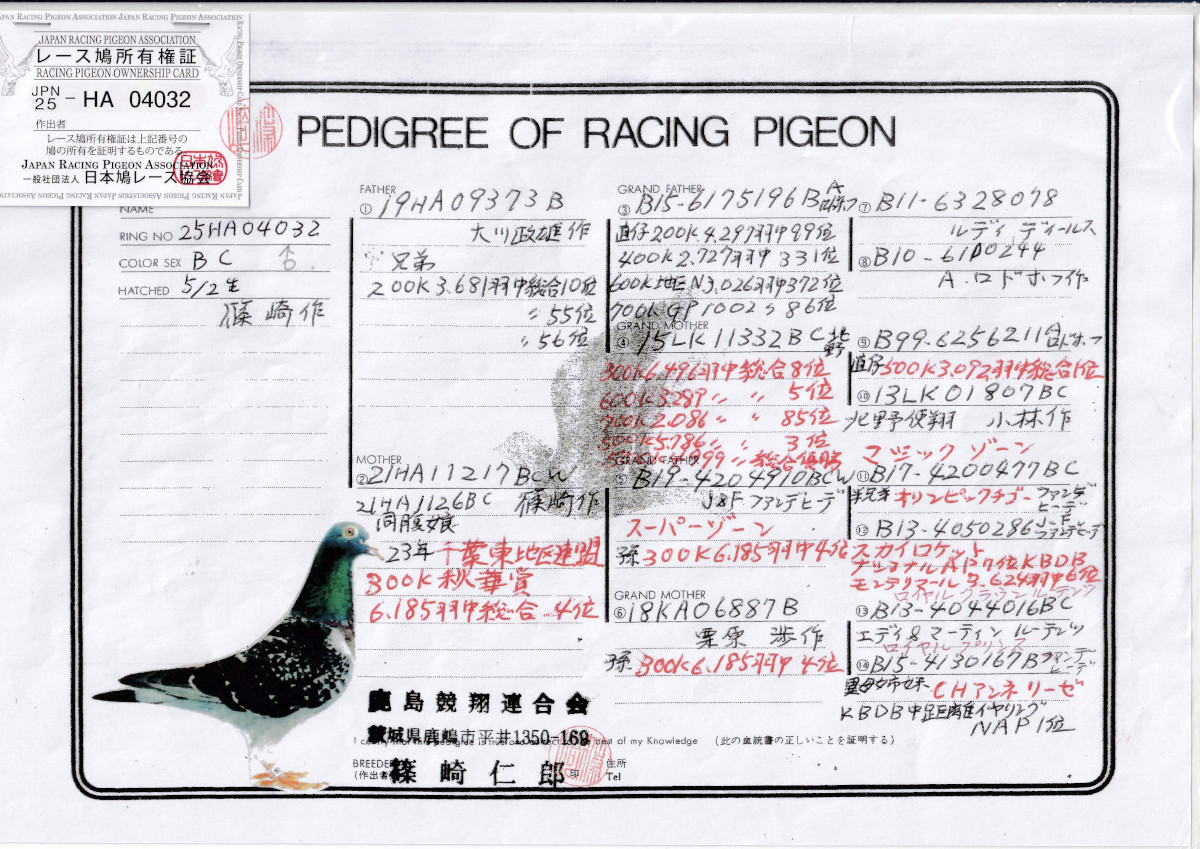 JAPAN RACING PIGEON ASSOCIATION JAPAN RACING PIGEON ASSOCIATION
JAPAN RACING PIGEON ASSOCIATION
レース鳩所有権証
RACING PIGEON OWNERSHIP CARD
JPN
25 - HA 04032
作出者
レース鳩所有権証は上記番号の
鳩の所有を証明するものである
JAPAN RACING PIGEON ASSOCIATION
一般社団法人 日本鳩レース協会
PEDIGREE OF RACING PIGEON
NAME
RING NO 25HA04032
COLOR SEX B C ♂
HATCHED 5/2生
篠崎作
FATHER
① 19HA09373B
大川政雄作
兄弟
200K3.681羽中総合10位
〃 55位
〃 56位
MOTHER
② 21HA11217BCW
21HA1126BC 篠崎作
同腹娘
23年千葉東地区連盟
300K秋華賞
6.185羽中総合 4位
GRAND FATHER
③ B15-6175196B
直仔200K4.297羽中99位
400K2.727羽中331位
600K地区N3.026羽中372位
700KGP1002〃86位
GRAND MOTHER
④ 15LK11332BC 北野
300K6.496羽中総合8位
600K3289〃 〃 5位
700K2.086〃 〃 85位
500K5.786〃 〃 3位
総合優勝
GRAND FATHER
⑤ B19-4204910BCW
J&Fファンデヒーデ
スーパーゾーン
孫300K6.185羽中4位
GRAND MOTHER
⑥ 18KA06887B
栗原 渉作
孫300K6.185羽中4位
⑦ B11-6328078
ルディ ディールス
⑧ B10-6100244
A.ロドホフ作
⑨ B99-6256211
直仔500K3.092羽中総合1位
⑩ 13LK01807BC
北野使翔 小林作
マジックゾーン
⑪ B17-4200477BC
半兄弟オリンピックチゴー ファンデヒーデ
⑫ B13-4050286 J&Fファンデヒーデ
スカイロケット
ナショナルAP7位KBDB
モンテリマール3.624羽中6位
ロイヤルクラウンルーテンツ
⑬ B13-4044016BC
エディ&マーティンルーテンツ
ロイヤルプリンス
⑭ B15-4130167B ファンデヒーデ
異母姉妹CHアンネリーゼ
KBDB中距離イヤリング
NAP1位
鹿島競翔連合会
茨城県鹿嶋市平井1350-169
I certify that this pedigree is true and correct to the best of my Knowledge (此の血統書の正しいことを証明する)
BREEDER
(作出者)
篠崎仁郎 印
住所
Tel